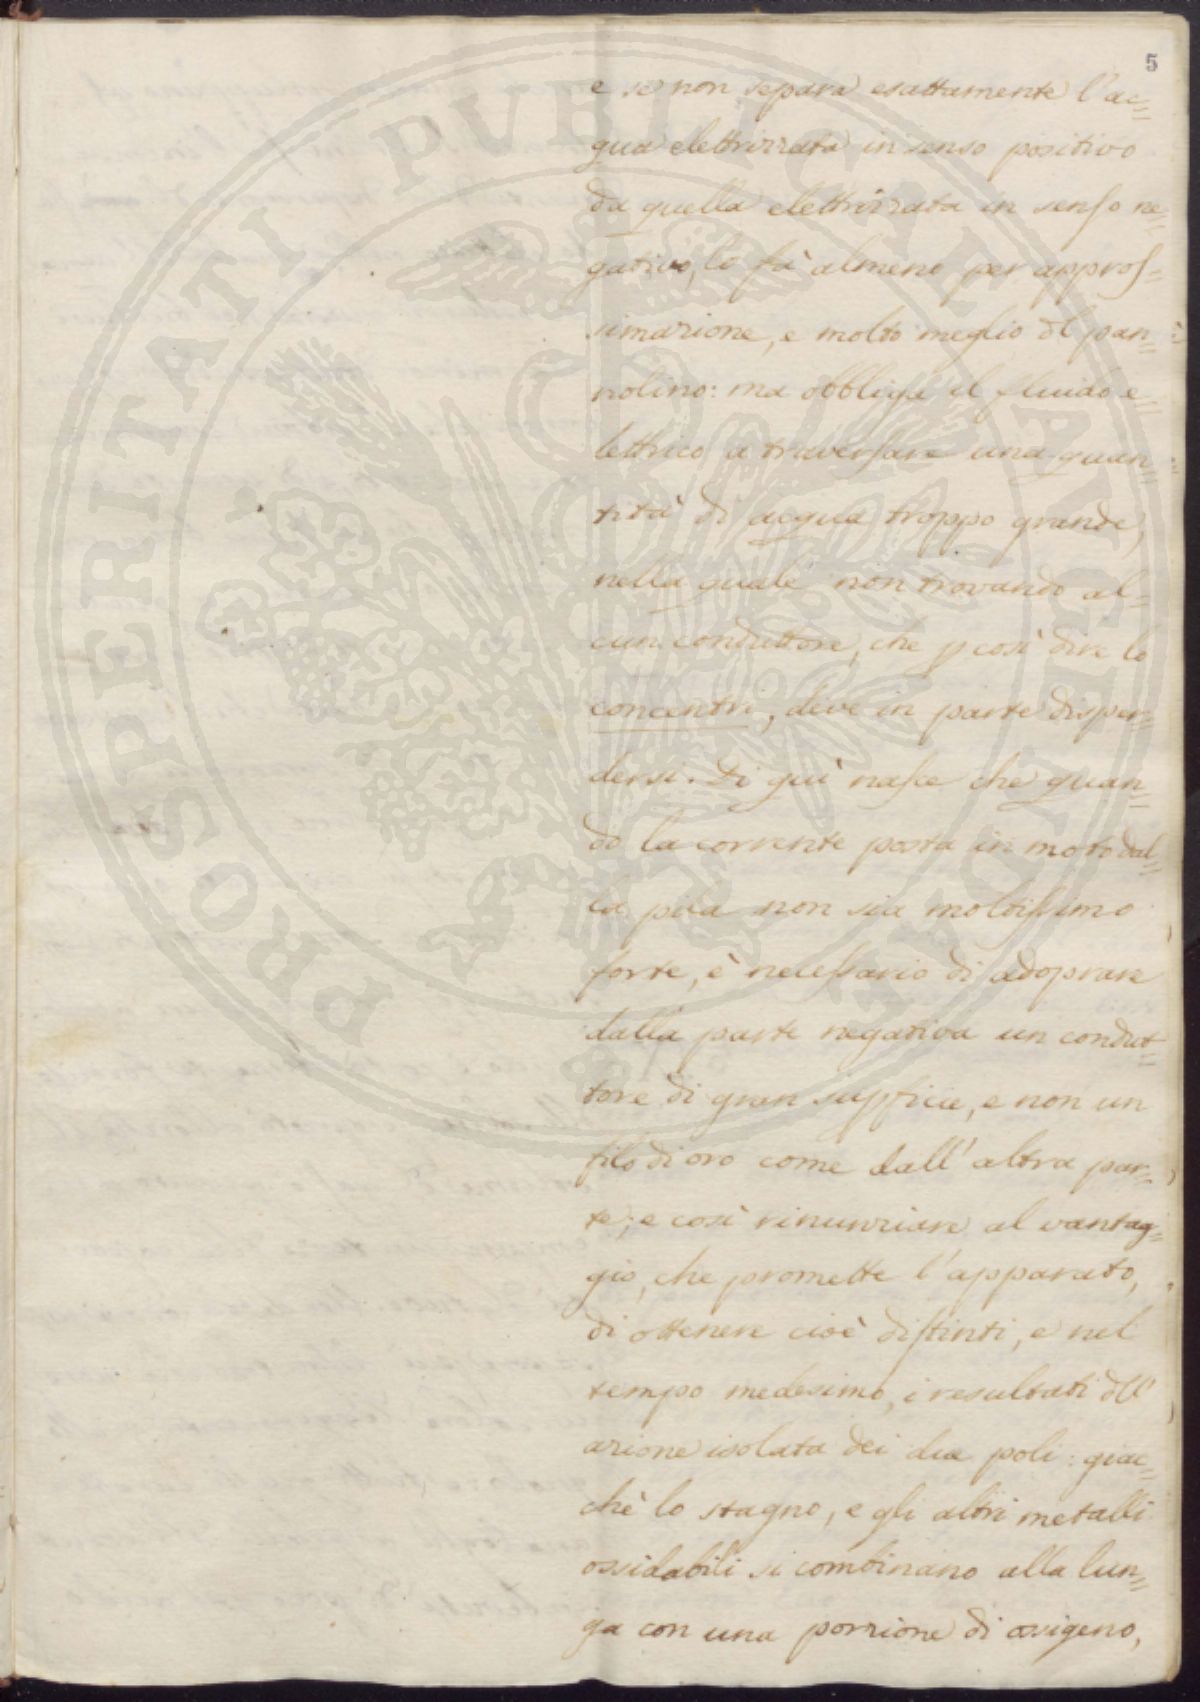 5
e se non separa esattamente l'ac=
qua elettrizzata in senso positivo
da quella elettrizzata in senso ne=
gativo, lo fà almeno per appros=
simazione, e molto meglio dl pan=
nolino: ma obbliga il fluido e=
lettrico a traversare una quan=
tità di acqua troppo grande,
nella quale non trovando al=
cun conduttore, che p così dire lo
concentri, deve in parte disper=
dersi. Di qui nasce che quan=
do la corrente posta in moto dal=
la pila non sia moltissimo
forte, è necessario di adoprare
dalla parte negativa un condut=
tore di gran supficie, e non un
filo di oro come dall' altra par=
te; e così rinunziare al vantag=
gio, che promette l'apparato,
di ottenere cioè distinti, e nel
tempo medesimo, i resultati dll'
azione isolata dei due poli: giac=
chè lo stagno, e gli altri metalli
ossidabili si combinano alla lun=
ga con una porzione di ossigeno,
PROSPERITATI PUBLICAE AUGENDAE